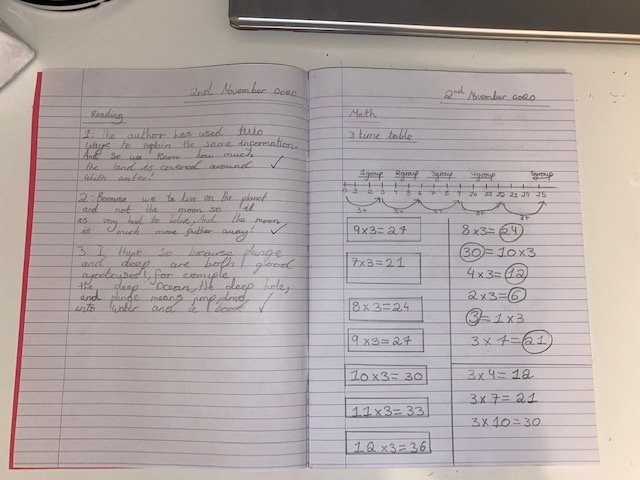 2nd November 2020
Reading
1: The author has used two
ways to explain the same information.
And so we know how much
the land is covered around
with water!
2: Because we to live on the planet
and not the moon so it
is very hard to believe, And the moon
is much more futher away!
3: I think so because plunge
and deep are both good
for example,
the deep Ocean, the deep hole,
and plunge means jump, dived,
into water and a book
2nd November 2020
Math
3 time table
1group 2group 3group 4group 5group
9x3=27
7x3=21
8x3=24
9x3=27
10x3=30
11x3=33
12x3=36
8x3=24
30=10x3
4x3=12
2x3=6
3=1x3
3x7=21
3x4=12
3x7=21
3x10=30